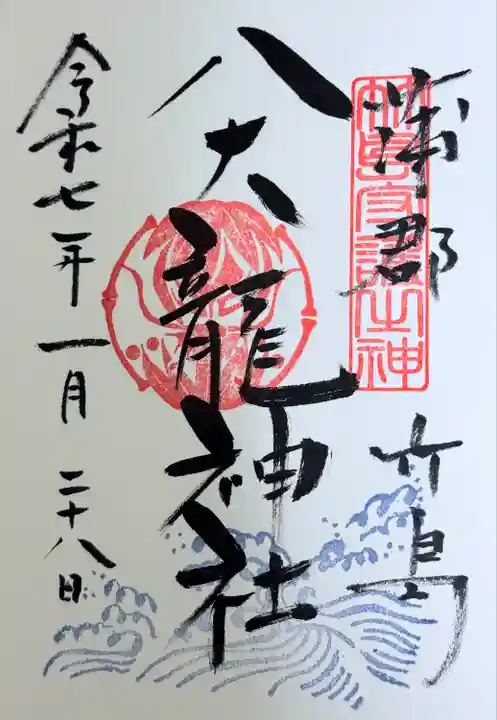 蒲郡 竹島
竹島守護之神
八大龍神社
令和七年一月二十八日